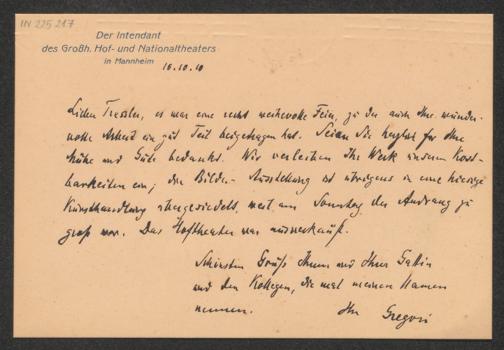 IN 225 217
Der Intendant
des Großh. Hof- und Nationaltheaters
in Mannheim
16.10.10
Lieber Tressler, es war eine recht weihevolle Feier, zu der auch Ihre wunder-
volle Arbeit ein gut Teil beigetragen hat. Seien Sie herzlich für Ihre
Mühe und Güte bedankt. Wir verleiben Ihr Werk unsern Kost-
barkeiten ein; die Bilder-Ausstellung ist übrigens in eine hiesige
Kunsthandlung übergesiedelt, weil am Sonntag der Andrang zu
groß war. Das Hoftheater war ausverkauft.
Schönsten Gruß Ihnen und Ihrer Gattin
und den Kollegen, die mal meinen Namen
nennen. Ihr Gregori